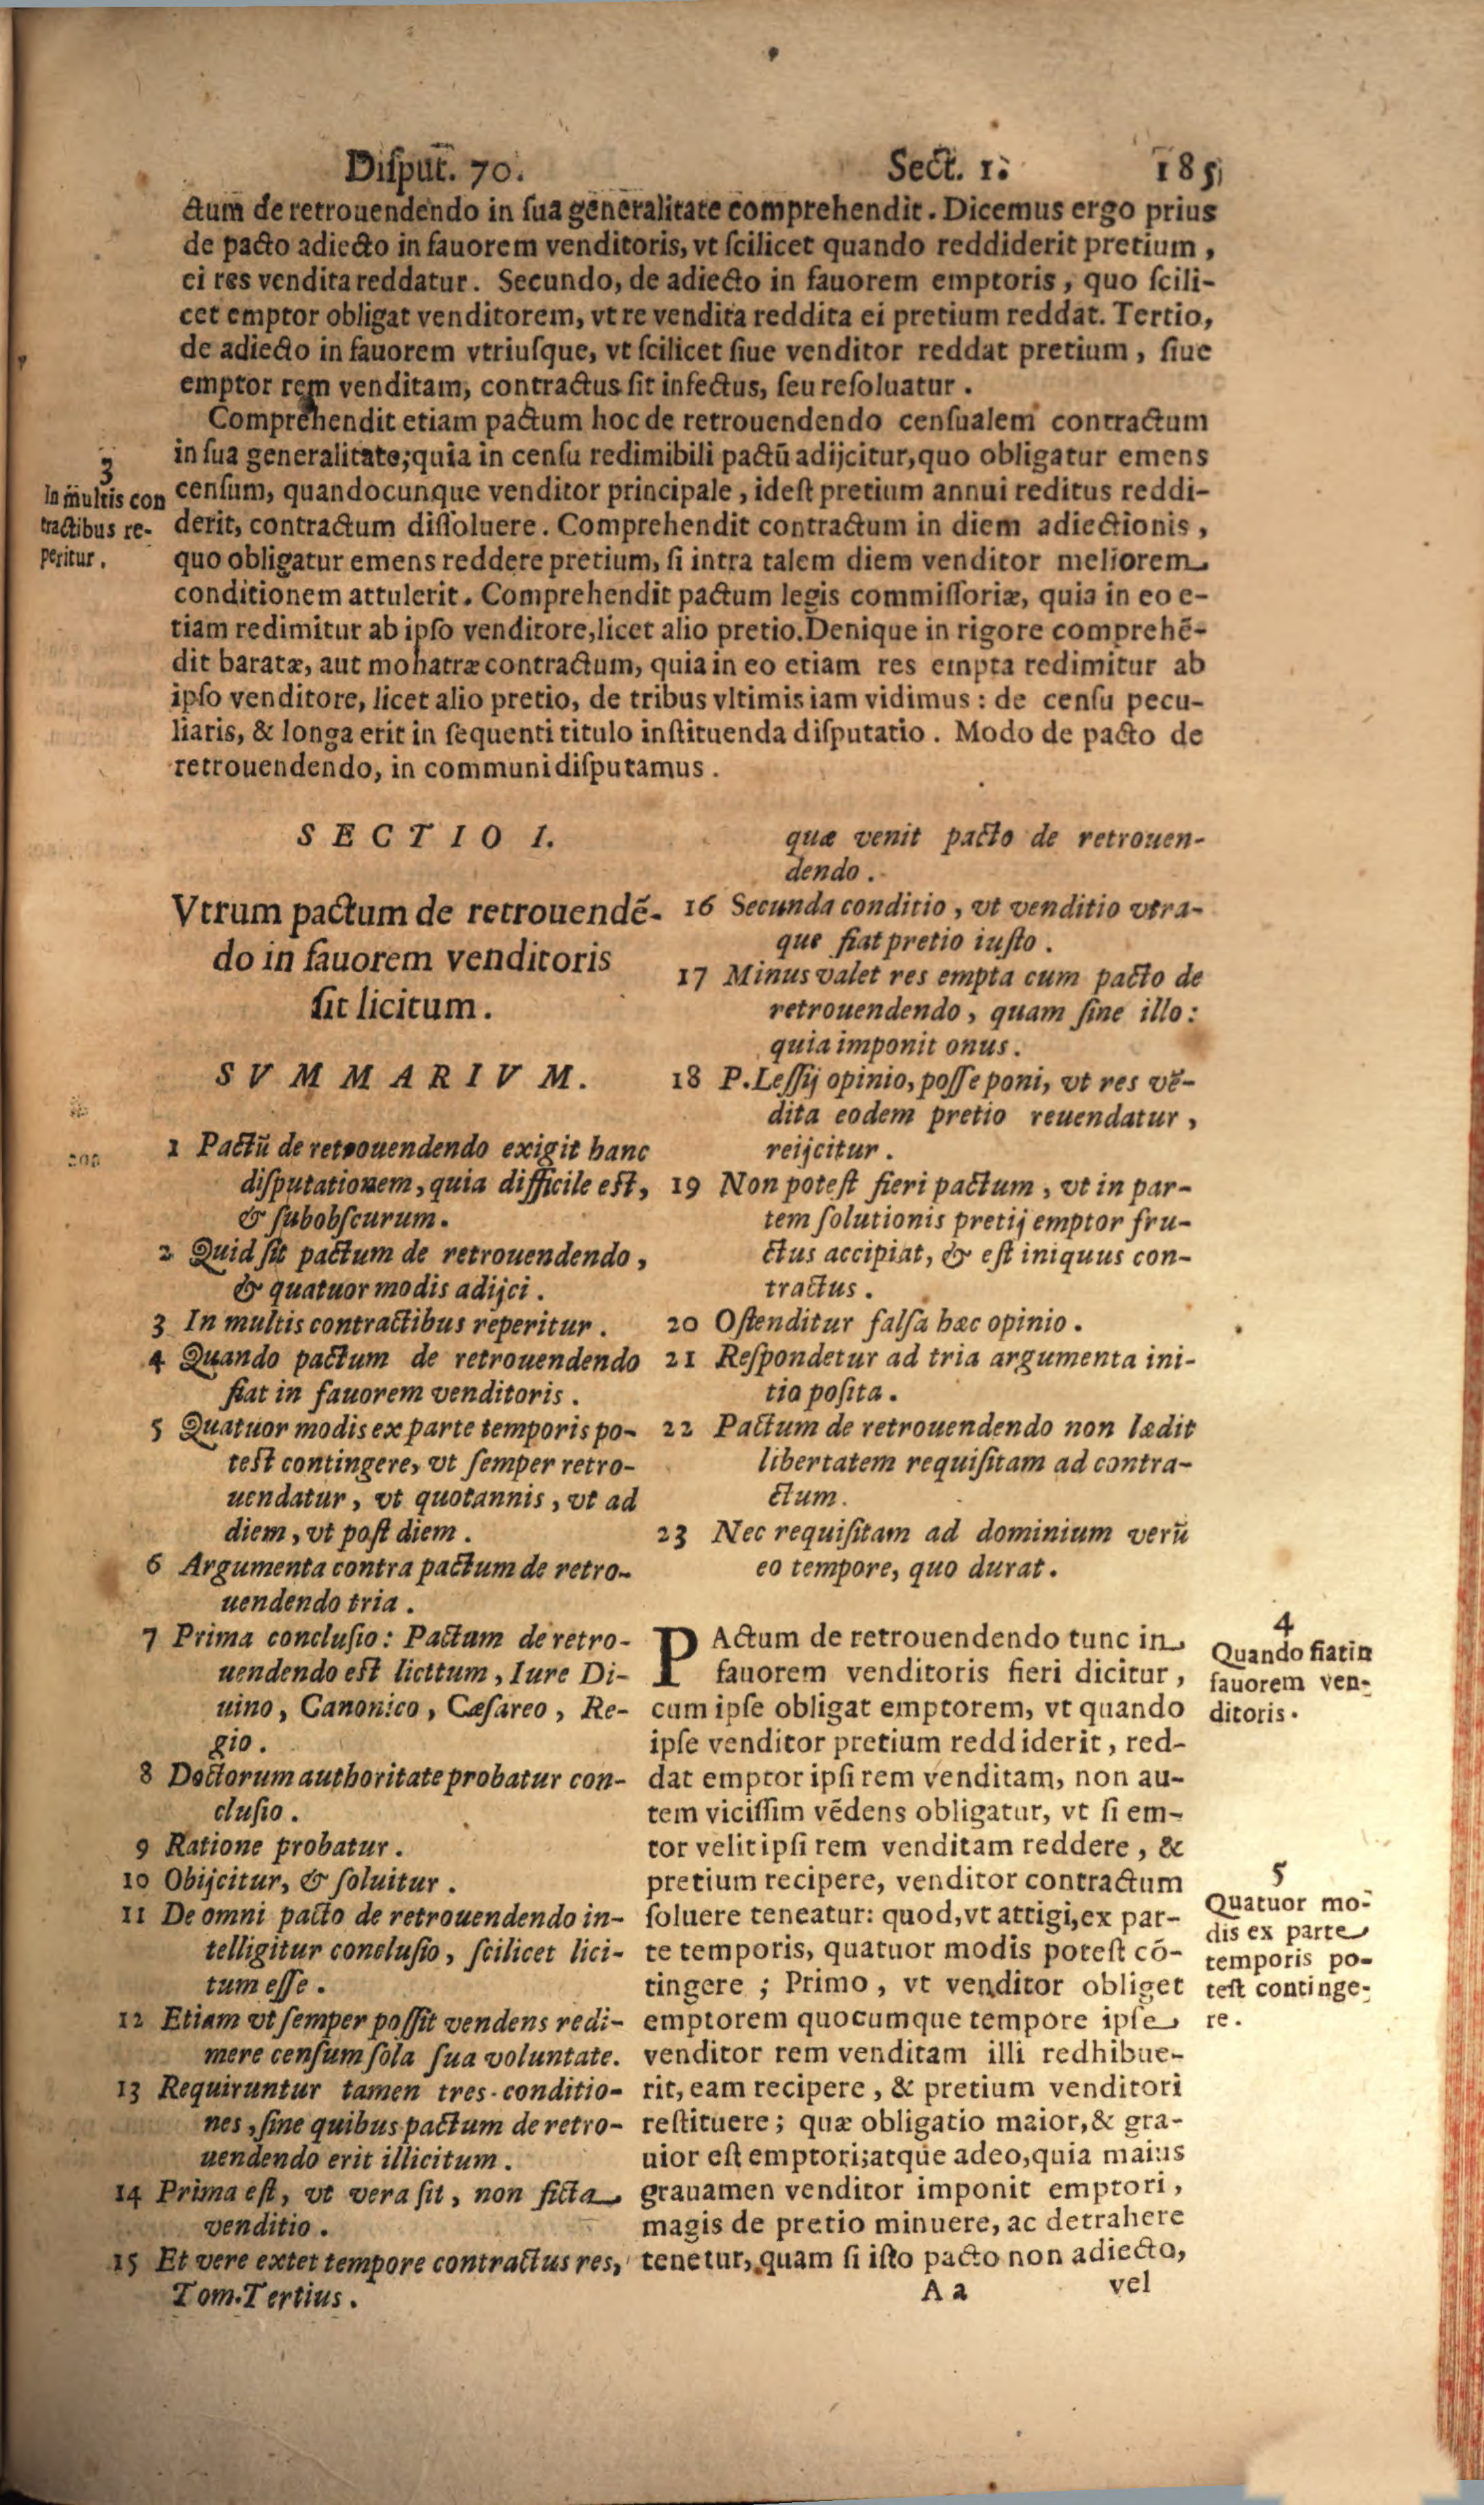 Disput. 70. Sect. 1. 185
ctum de retrouendendo in sua generalitate comprehendit. Dicemus ergo prius
de pacto adiecto in fauorem venditoris, vt scilicet quando reddiderit pretium,
ei res vendita reddatur. Secundo, de adiecto in fauorem emptoris, quo scili-
cet emptor obligat venditorem, vt re vendita reddita ei pretium reddat. Tertio,
de adiecto in fauorem vtriusque, vt scilicet siue venditor reddat pretium, siue
emptor rem venditam, contractus sit infectus, seu resoluatur.
Comprehendit etiam pactum hoc de retrouendendo censualem contractum
in sua generalitate; quia in censu redimibili pactū adijcitur, quo obligatur emens
censum, quandocunque venditor principale, idest pretium annui reditus reddi-
derit, contractum dissoluere. Comprehendit contractum in diem adiectionis,
quo obligatur emens reddere pretium, si intra talem diem venditor meliorem
conditionem attulerit. Comprehendit pactum legis commissoriæ, quia in eo e-
tiam redimitur ab ipso venditore, licet alio pretio. Denique in rigore comprehē-
dit baratæ, aut mohatræ contractum, quia in eo etiam res empta redimitur ab
ipso venditore, licet alio pretio, de tribus vltimis iam vidimus: de censu pecu-
liaris, & longa erit in sequenti titulo instituenda disputatio. Modo de pacto de
retrouendendo, in communi disputamus.
3
In multis con
tractibus re-
peritur.
SECTIO I.
Vtrum pactum de retrouendē-
do in fauorem venditoris
sit licitum.
SVMMARIVM.
1 Pactū de retrouendendo exigit hanc
disputationem, quia difficile est,
& subobscurum.
2 Quid sit pactum de retrouendendo,
& quatuor modis adijci.
3 In multis contractibus reperitur.
4 Quando pactum de retrouendendo
fiat in fauorem venditoris.
5 Quatuor modis ex parte temporis po-
test contingere, vt semper retro-
uendatur, vt quotannis, vt ad
diem, vt post diem.
6 Argumenta contra pactum de retro-
uendendo tria.
7 Prima conclusio: Pactum de retro-
uendendo est licitum, Iure Di-
uino, Canonico, Cæsareo, Re-
gio.
8 Doctorum authoritate probatur con-
clusio.
9 Ratione probatur.
10 Obijcitur, & soluitur.
11 De omni pacto de retrouendendo in-
telligitur conclusio, scilicet lici-
tum esse.
12 Etiam vt semper possit vendens redi-
mere censum sola sua voluntate.
13 Requiruntur tamen tres conditio-
nes, sine quibus pactum de retro-
uendendo erit illicitum.
14 Prima est, vt vera sit, non ficta
venditio.
15 Et vere extet tempore contractus res,
quæ venit pacto de retrouen-
dendo.
16 Secunda conditio, vt venditio vtra-
que fiat pretio iusto.
17 Minus valet res empta cum pacto de
retrouendendo, quam sine illo:
quia imponit onus.
18 P. Lessij opinio, posse poni, vt res vē-
dita eodem pretio reuendatur,
reijcitur.
19 Non potest fieri pactum, vt in par-
tem solutionis pretij emptor fru-
ctus accipiat, & est iniquus con-
tractus.
20 Ostenditur falsa hæc opinio.
21 Respondetur ad tria argumenta ini-
tio posita.
22 Pactum de retrouendendo non lædit
libertatem requisitam ad contra-
ctum.
23 Nec requisitam ad dominium verū
eo tempore, quo durat.
PActum de retrouendendo tunc in
fauorem venditoris fieri dicitur,
cum ipse obligat emptorem, vt quando
ipse venditor pretium reddiderit, red-
dat emptor ipsi rem venditam, non au-
tem vicissim vēdens obligatur, vt si em-
tor velit ipsi rem venditam reddere, &
pretium recipere, venditor contractum
soluere teneatur: quod, vt attigi, ex par-
te temporis, quatuor modis potest cō-
tingere; Primo, vt venditor obliget
emptorem quocumque tempore ipse
venditor rem venditam illi redhibue-
rit, eam recipere, & pretium venditori
restituere; quæ obligatio maior, & gra-
uior est emptori; atque adeo, quia maius
grauamen venditor imponit emptori,
magis de pretio minuere, ac detrahere
tenetur, quam si isto pacto non adiecto,
4
Quando fiat in
fauorem ven-
ditoris.
5
Quatuor mo-
dis ex parte
temporis po-
test continge-
re.
Tom. Tertius. A a vel